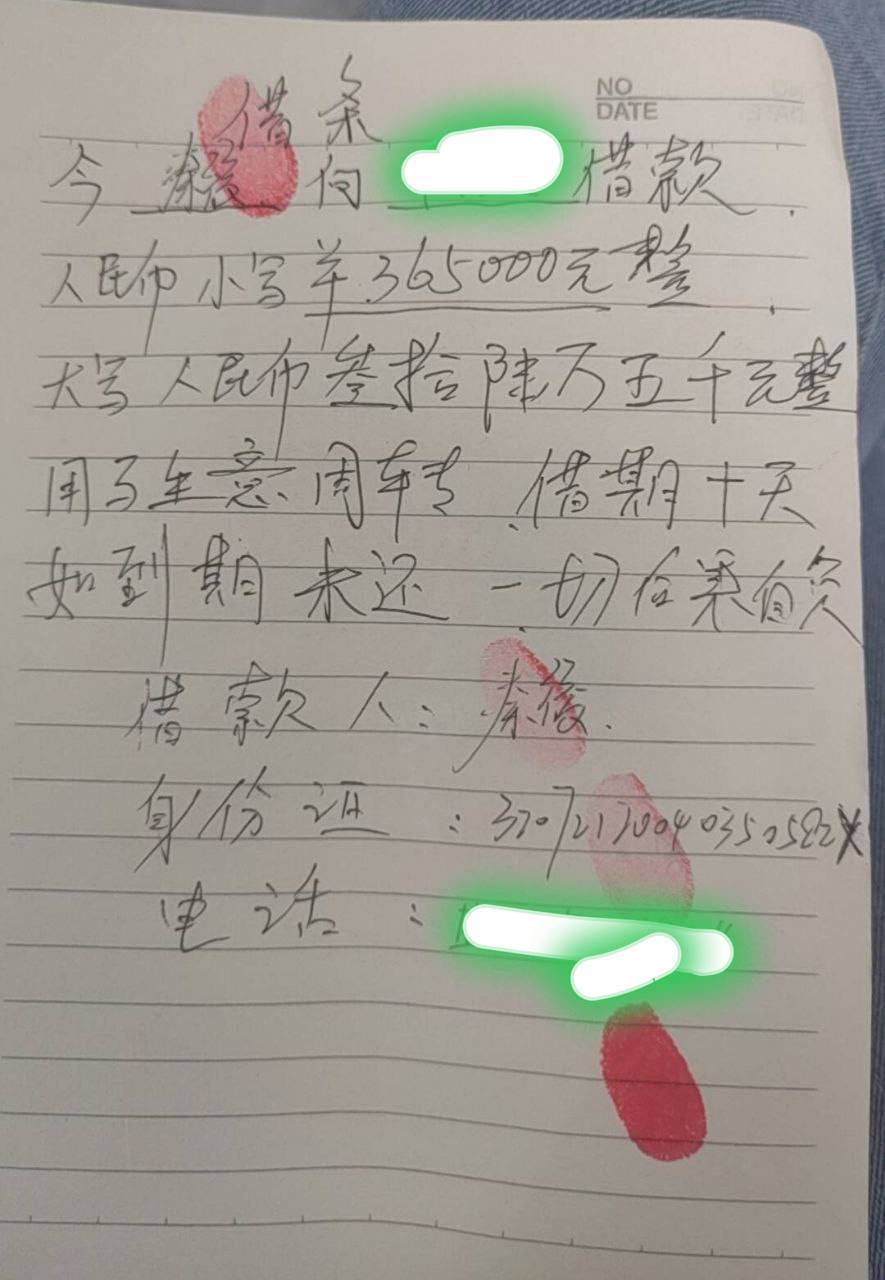 NO
DATE
借条
今 秦俊 向 借款.
人民币小写 羊365000元整.
大写人民币叁拾陆万五千元整
用于生意周转.借期十天
如到期未还一切后果自负
借款人:秦俊.
身份证:
电话: